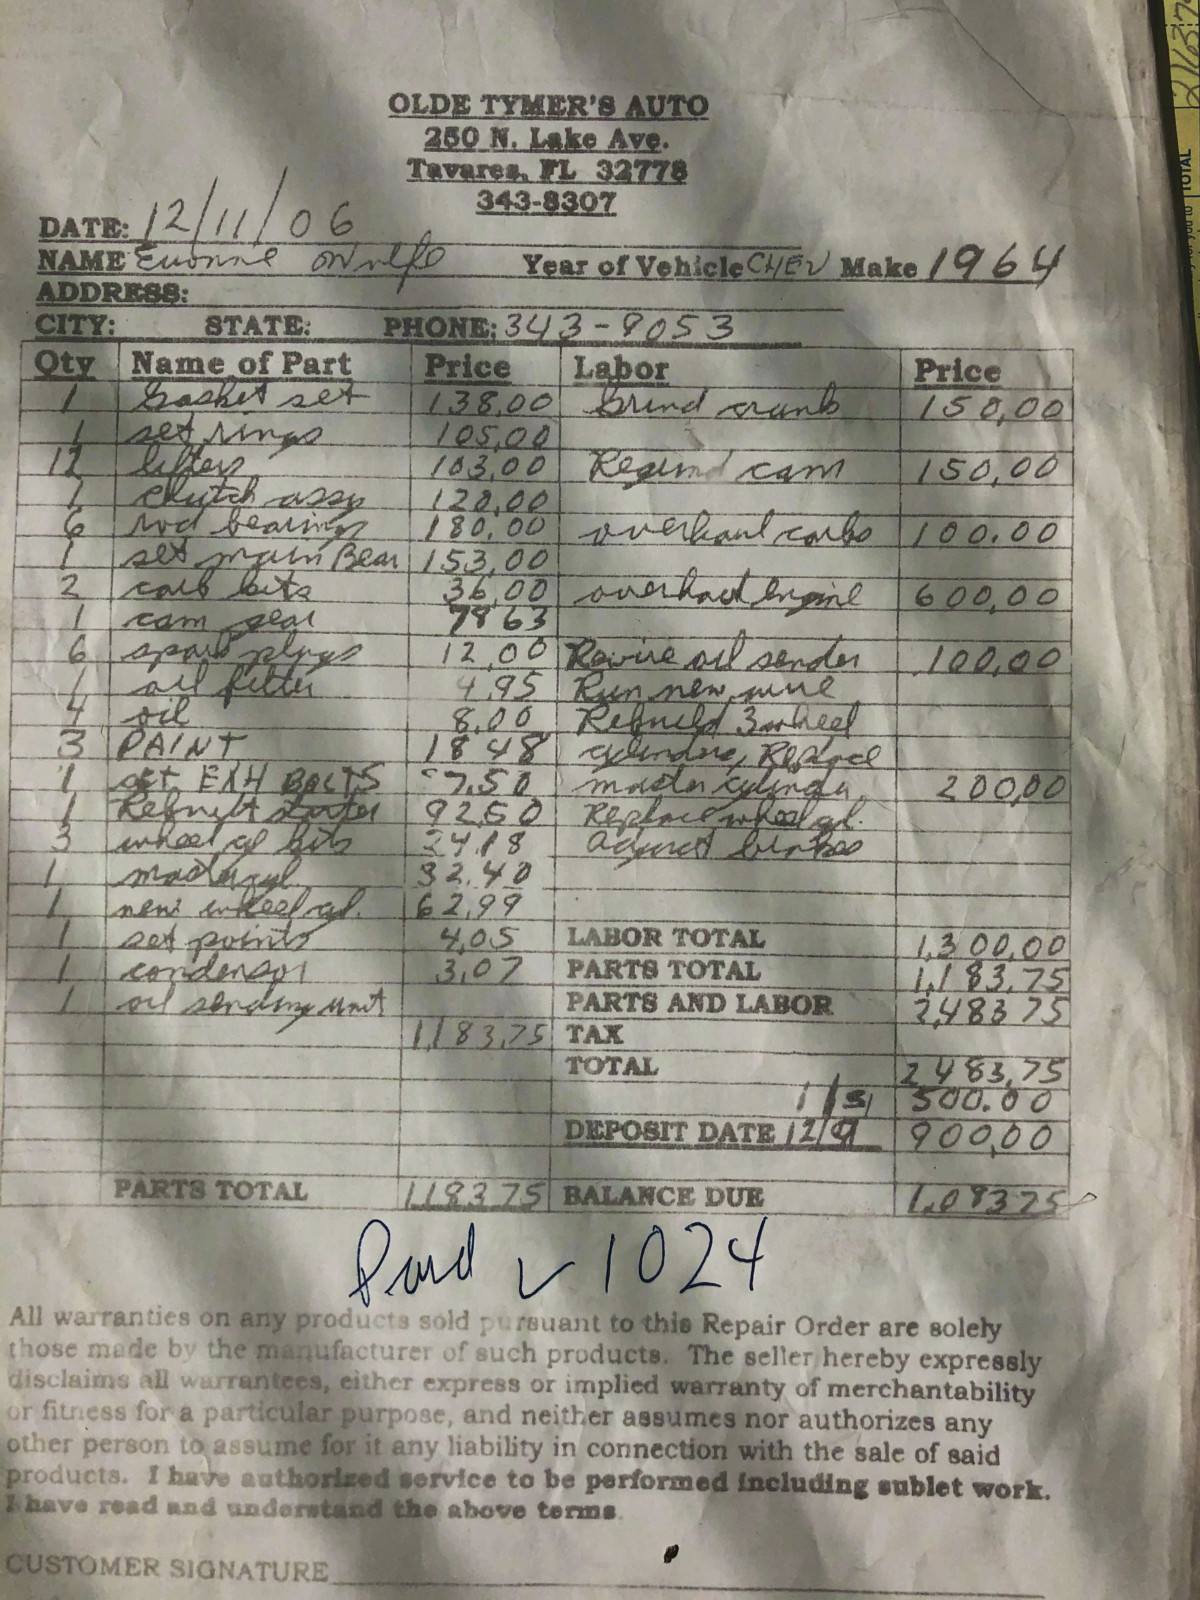 OLDE TYMER'S AUTO
250 N. Lake Ave.
Tavares, FL 32778
343-8307
DATE: 12/11/06
NAME Evonne Year of Vehicle CHEV Make 1964
ADDRESS:
CITY: STATE: PHONE: 343-9053
Qty Name of Part Price Labor Price
1 Gasket set 138.00 Grind crank 150.00
1 set rings 105.00
12 lifters 103.00 Regrind cam 150.00
1 clutch assy 120.00
6 rod bearings 180.00 overhaul carbs 100.00
1 set main Bear 153.00
2 carb kits 36.00 overhaul engine 600.00
1 cam gear 7863
6 spark plugs 12.00 Rewire oil sender 100.00
1 oil filter 4.95 Run new wire
4 oil 8.00 Rebuild 3 wheel
3 PAINT 18 48 cylinders, Replace
1 set EXH BOLTS 7.50 master cylinder 200.00
1 Rebuilt starter 92.50 Replace wheel cyl.
3 wheel cyl kits 24.18 adjust brakes
1 master cyl 32.40
1 new wheel cyl. 62.99
1 set points 4.05 LABOR TOTAL 1,300.00
1 condensor 3.07 PARTS TOTAL 1,183.75
1 oil sending unit PARTS AND LABOR 2,483 75
1,183.75 TAX
TOTAL 2483.75
500.00
DEPOSIT DATE 900.00
PARTS TOTAL 1183.75 BALANCE DUE 1,083 75
Paid 1024
All warranties on any products sold pursuant to this Repair Order are solely
those made by the manufacturer of such products. The seller hereby expressly
disclaims all warrantees, either express or implied warranty of merchantability
or fitness for a particular purpose, and neither assumes nor authorizes any
other person to assume for it any liability in connection with the sale of said
products. I have authorized service to be performed including sublet work.
I have read and understand the above terms.
CUSTOMER SIGNATURE
TOTAL